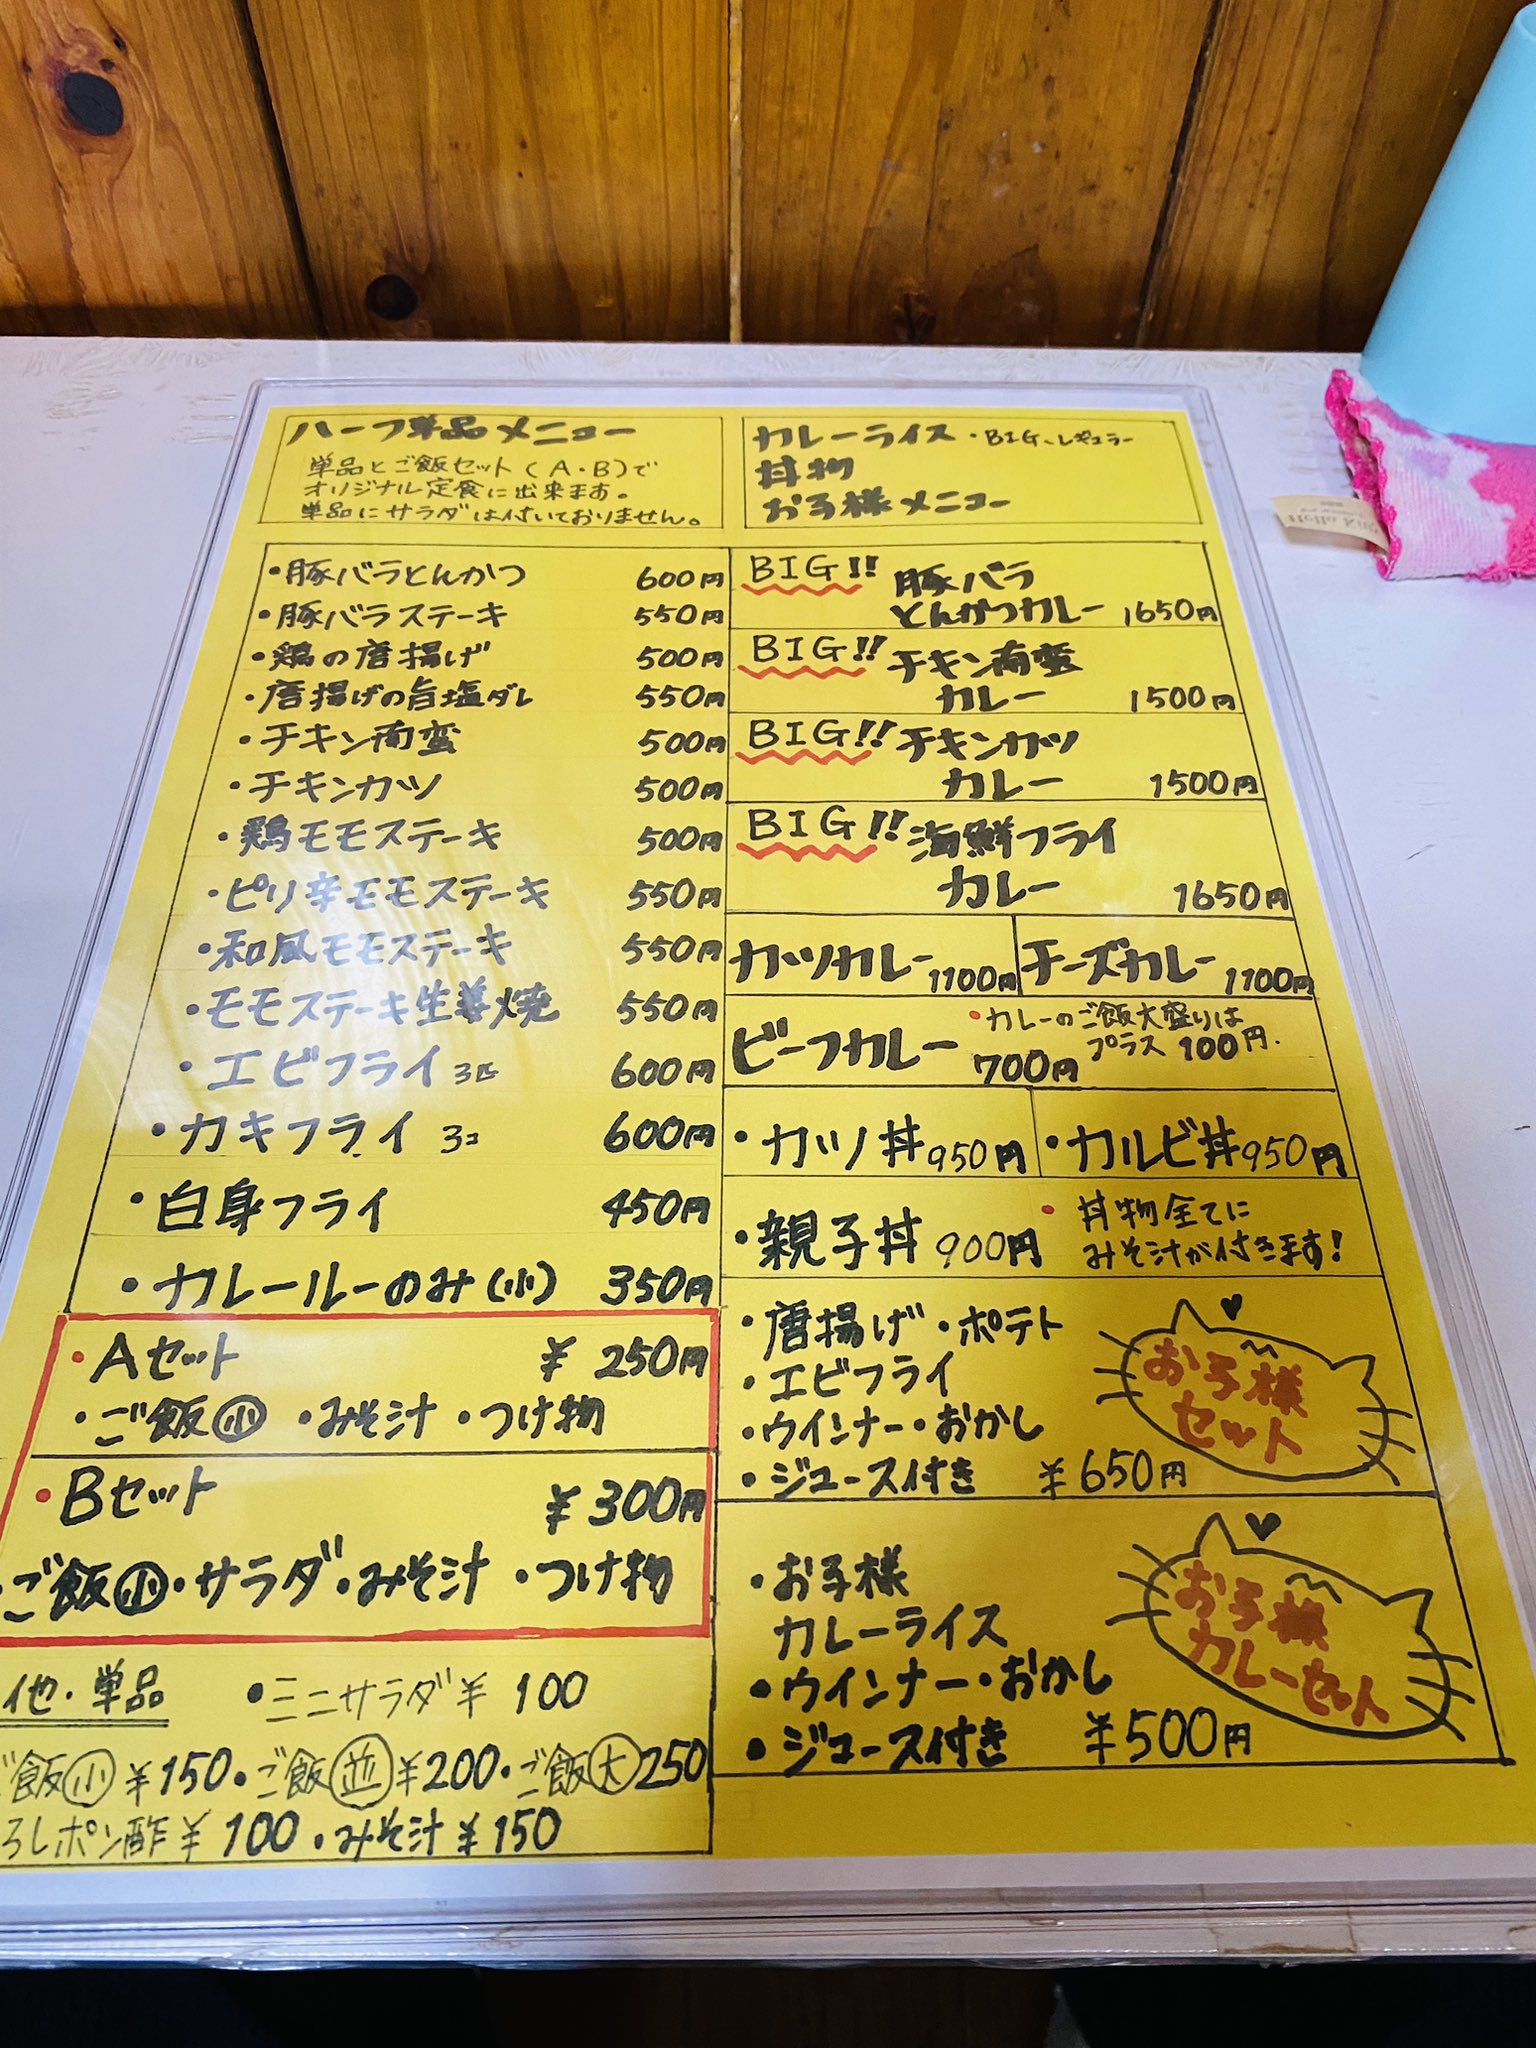 ハーフ単品メニュー
単品とご飯セット(A・B)で
オリジナル定食に出来ます。
単品にサラダは付いておりません。
・豚バラとんかつ 600円
・豚バラステーキ 550円
・鶏の唐揚げ 500円
・唐揚げの旨塩ダレ 550円
・チキン南蛮 500円
・チキンカツ 500円
・鶏モモステーキ 500円
・ピリ辛モモステーキ 550円
・和風モモステーキ 550円
・モモステーキ生姜焼 550円
・エビフライ 3匹 600円
・カキフライ 3コ 600円
・白身フライ 450円
・カレールーのみ(小) 350円
・Aセット ¥250円
・ご飯小 ・みそ汁 ・つけ物
・Bセット ¥300円
・ご飯小・サラダ・みそ汁 ・つけ物
他・単品 ・ミニサラダ¥100
ご飯小 ¥150・ご飯並¥200・ご飯大250
ろしポン酢¥100・みそ汁¥150
カレーライス・BIG、レギュラー
丼物
お子様メニュー
BIG!! 豚バラ
とんかつカレー 1650円
BIG!! チキン南蛮
カレー 1500円
BIG!! チキンカツ
カレー 1500円
BIG!! 海鮮フライ
カレー 1650円
カツカレー1100円 チーズカレー1100円
ビーフカレー 700円
・カレーのご飯大盛りは
プラス100円.
・カツ丼950円 ・カルビ丼950円
・親子丼 900円
・丼物全てに
みそ汁が付きます!
・唐揚げ・ポテト
・エビフライ
・ウインナー・おかし
・ジュース付き ¥650円
お子様
セット
・お子様
カレーライス
・ウインナー・おかし
・ジュース付き ¥500円
お子様
カレーセット